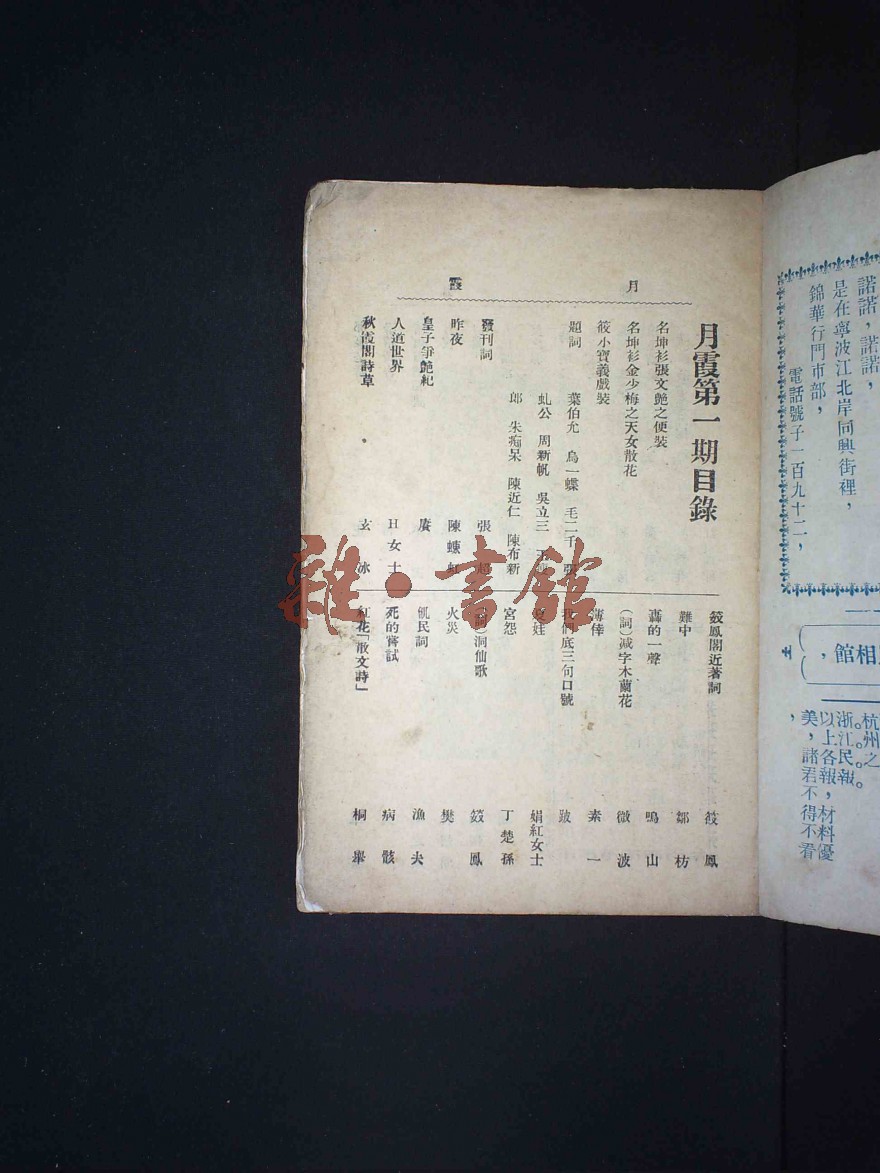 諾諾，諾諾，
是在寧波江北岸同興街裡，
錦華行門市部，
電話號子一百九十二，
相館，
杭州之
浙江民報。
以上各報，材料優
美，諸君不得不看
，
月
霞
月霞第一期目錄
名坤衫張文艷之便裝
名坤衫金少梅之天女散花
筱小寶義戲裝
題詞 葉伯允 烏一蝶 毛二千
虬公 周新帆 吳立三
郎 朱痴呆 陳近仁 陳布新
發刊詞 張超
昨夜 陳蝶紅
皇子爭艷紀 賡
人道世界 日女士
秋霞閣詩草 玄冰
筱鳳閣近著詞 筱鳳
難中 鄒枋
轟的一聲 鳴山
（詞）減字木蘭花 微波
薄倖 素一
我們底三句口號 跛
娃 娟紅女士
宮怨 丁楚孫
（詞）洞仙歌 筱鳳
火災 樊
飢民詞 漁夫
死的嘗試 病骸
紅花「散文詩」 桐舉
雜·書館